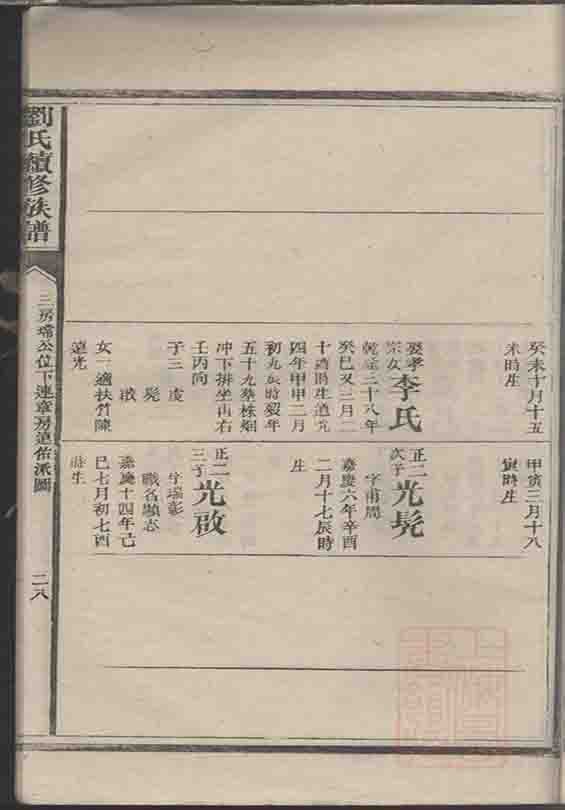 劉氏續修族譜
三房瑺公位下連章房遠佑派圖
二八
癸未十月十五
未時生
娶孝
宗女
李氏
乾隆三十八年
癸巳又三月二
十酉時生道光
四年甲申二月
初九辰時歿年
五十九塟株烟
冲下排坐丙右
壬丙向
子三 虔
髡
啟
女一適扶竹陳
遠光
甲寅三月十八
寅時生
正二
次子
光髡
字甫周
嘉慶六年辛酉
二月十七辰時
生
正二
三子
光啟
字瑞彰
職名顯志
嘉慶十四年己
巳七月初七酉
時生